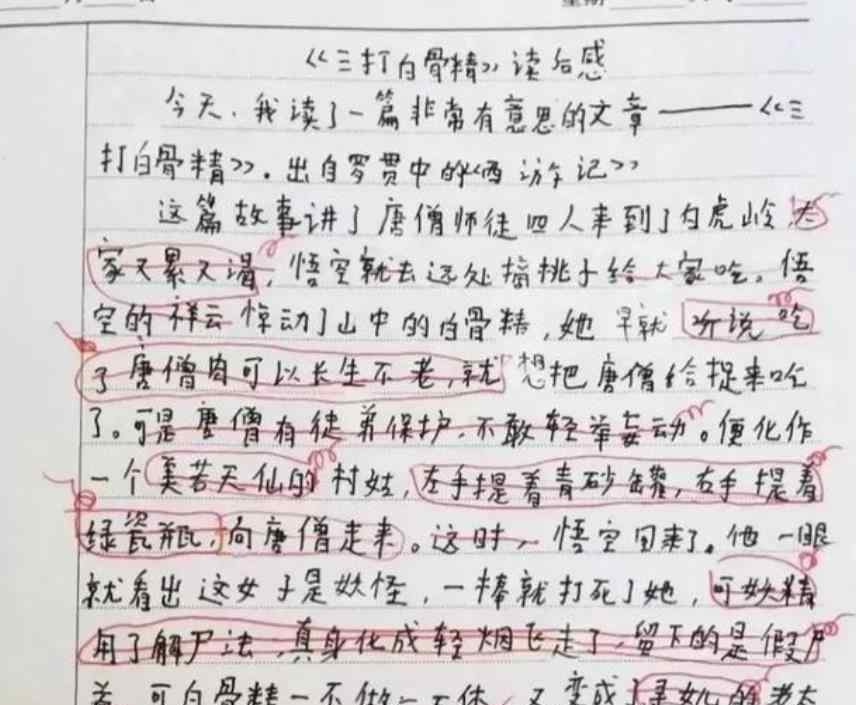 《三打白骨精》读后感
今天，我读了一篇非常有意思的文章——《三
打白骨精》。出自罗贯中的《西游记》
这篇故事讲了唐僧师徒四人来到了白虎岭，大
家又累又渴，悟空就去远处摘桃子给大家吃。悟
空的祥云惊动了山中的白骨精，她早就听说吃
了唐僧肉可以长生不老，就想把唐僧给捉来吃
了。可是唐僧有徒弟保护，不敢轻举妄动。便化作
一个美若天仙的村姑，左手提着青砂罐，右手提着
绿瓷瓶，向唐僧走来。这时，悟空回来了。他一眼
就看出这女子是妖怪，一棒就打死了她，可妖精
用了解尸法，真身化成轻烟飞走了，留下的是假尸
可白骨精一不做二不休，又变成了